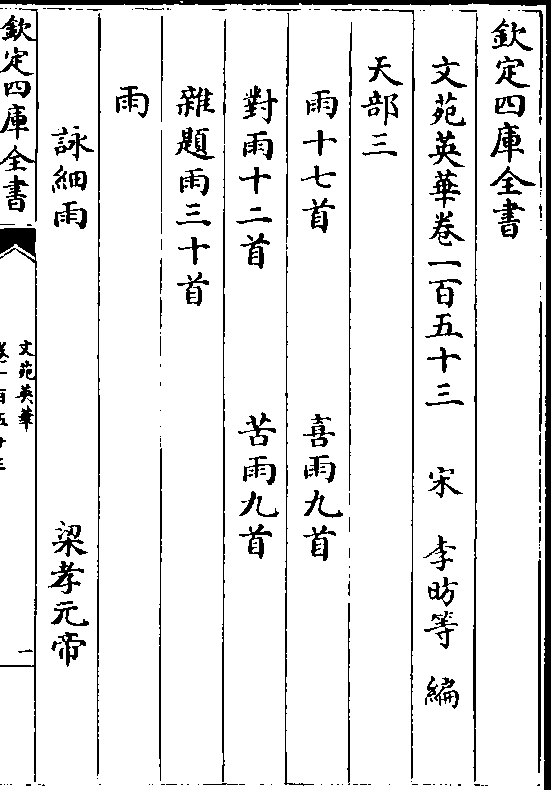 欽定四庫全書
文苑英華卷一百五十三 宋 李昉等 編
天部三
雨十七首 喜雨九首
對雨十二首 苦雨九首
雜題雨三十首
雨
詠細雨 梁孝元帝
欽定四庫全書
文苑英華
卷一百五十三
一